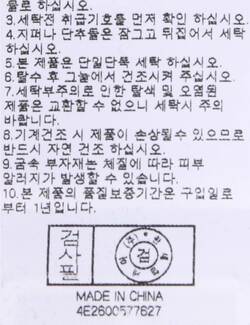 물로 하십시오.
3.세탁전 취급기호를 먼저 확인 하십시오.
4.지퍼나 단추들은 잠그고 뒤집어서 세탁
하십시오.
5.본 제품은 단일단독 세탁 하십시오.
6.탈수 후 그늘에서 건조시켜 주십시오.
7.세탁부주의로 인한 탈색 및 오염된
제품은 교환할 수 없으니 세탁시 주의
바랍니다.
8.기계건조 시 제품이 손상될수 있으므로
반드시 자연 건조 하십시오.
9.금속 부자재는 체질에 따라 피부
알러지가 발생할 수 있습니다.
10.본 제품의 품질보증기간은 구입일로
부터 1년입니다.
검사필
(주)
검
MADE IN CHINA
4E2600577627